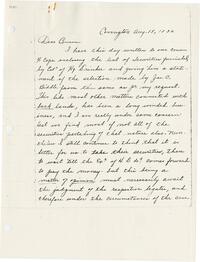 Covington Aug. 15, 1882
Dear Cousin
I have this day written to our cousin
H Cope enclosing the list of Securities furnished
by Exr of Hy Drinker and giving him a state-
ment of the selection made by Jas. C.
Biddle from this same as pr. my request.
This like most other matters connected with
back lands, has been a long winded bus-
iness, and I am really under some concern
lest we find most if not all of the
securities partaking of that nature also. Never-
theless I still continue to think that it is
better for us to take these securities, than
to wait till the Exrs of H. D. dec. comes forward
to pay the money but this being a
matter of opinion must necessarily await
the judgment of the respective legatees, and
therefore under the circumstances of the case